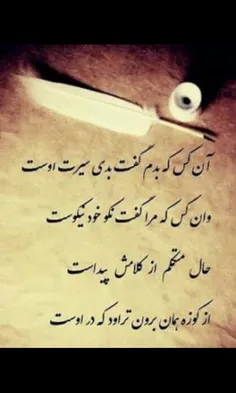 آن کس که بدم گفت بدی سیرت اوست
وان کس که مرا گفت نکو خود نیکوست
حال متکلم از کلامش پیداست
از کوزه همان برون تراود که در اوست